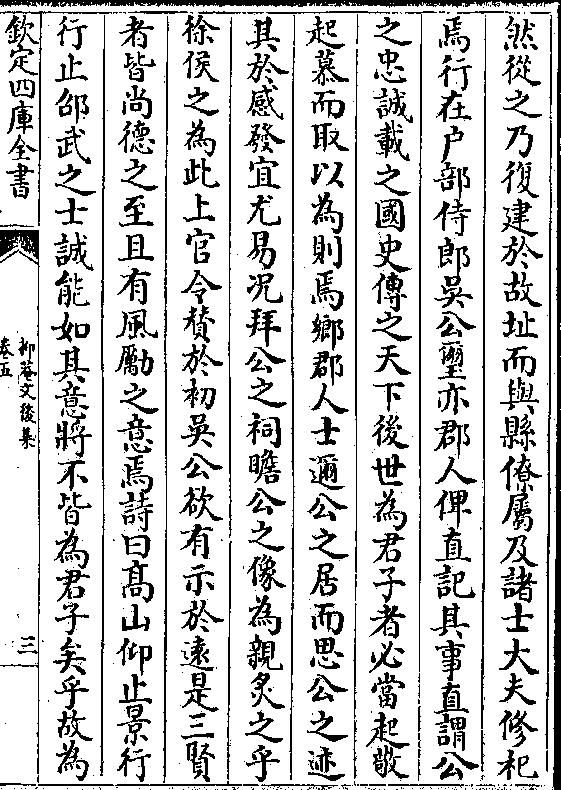 然從之乃復建於故址而與縣僚屬及諸士大夫修祀
焉行在户部侍郎吳公璽亦郡人俾直記其事直謂公
之忠誠載之國史傳之天下後世為君子者必當起敬
起慕而取以為則焉鄉郡人士邇公之居而思公之迹
其於感發宜尤易况拜公之祠瞻公之像為親炙之乎
徐侯之為此上官令賛於初吳公欲有示於逺是三賢
者皆尚德之至且有風勵之意焉詩曰髙山仰止景行
行止邵武之士誠能如其意將不皆為君子矣乎故為
欽定四庫全書
抑菴文後集
卷五
三